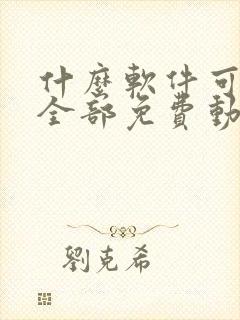 什麼軟件可
全部免費動
劉克希